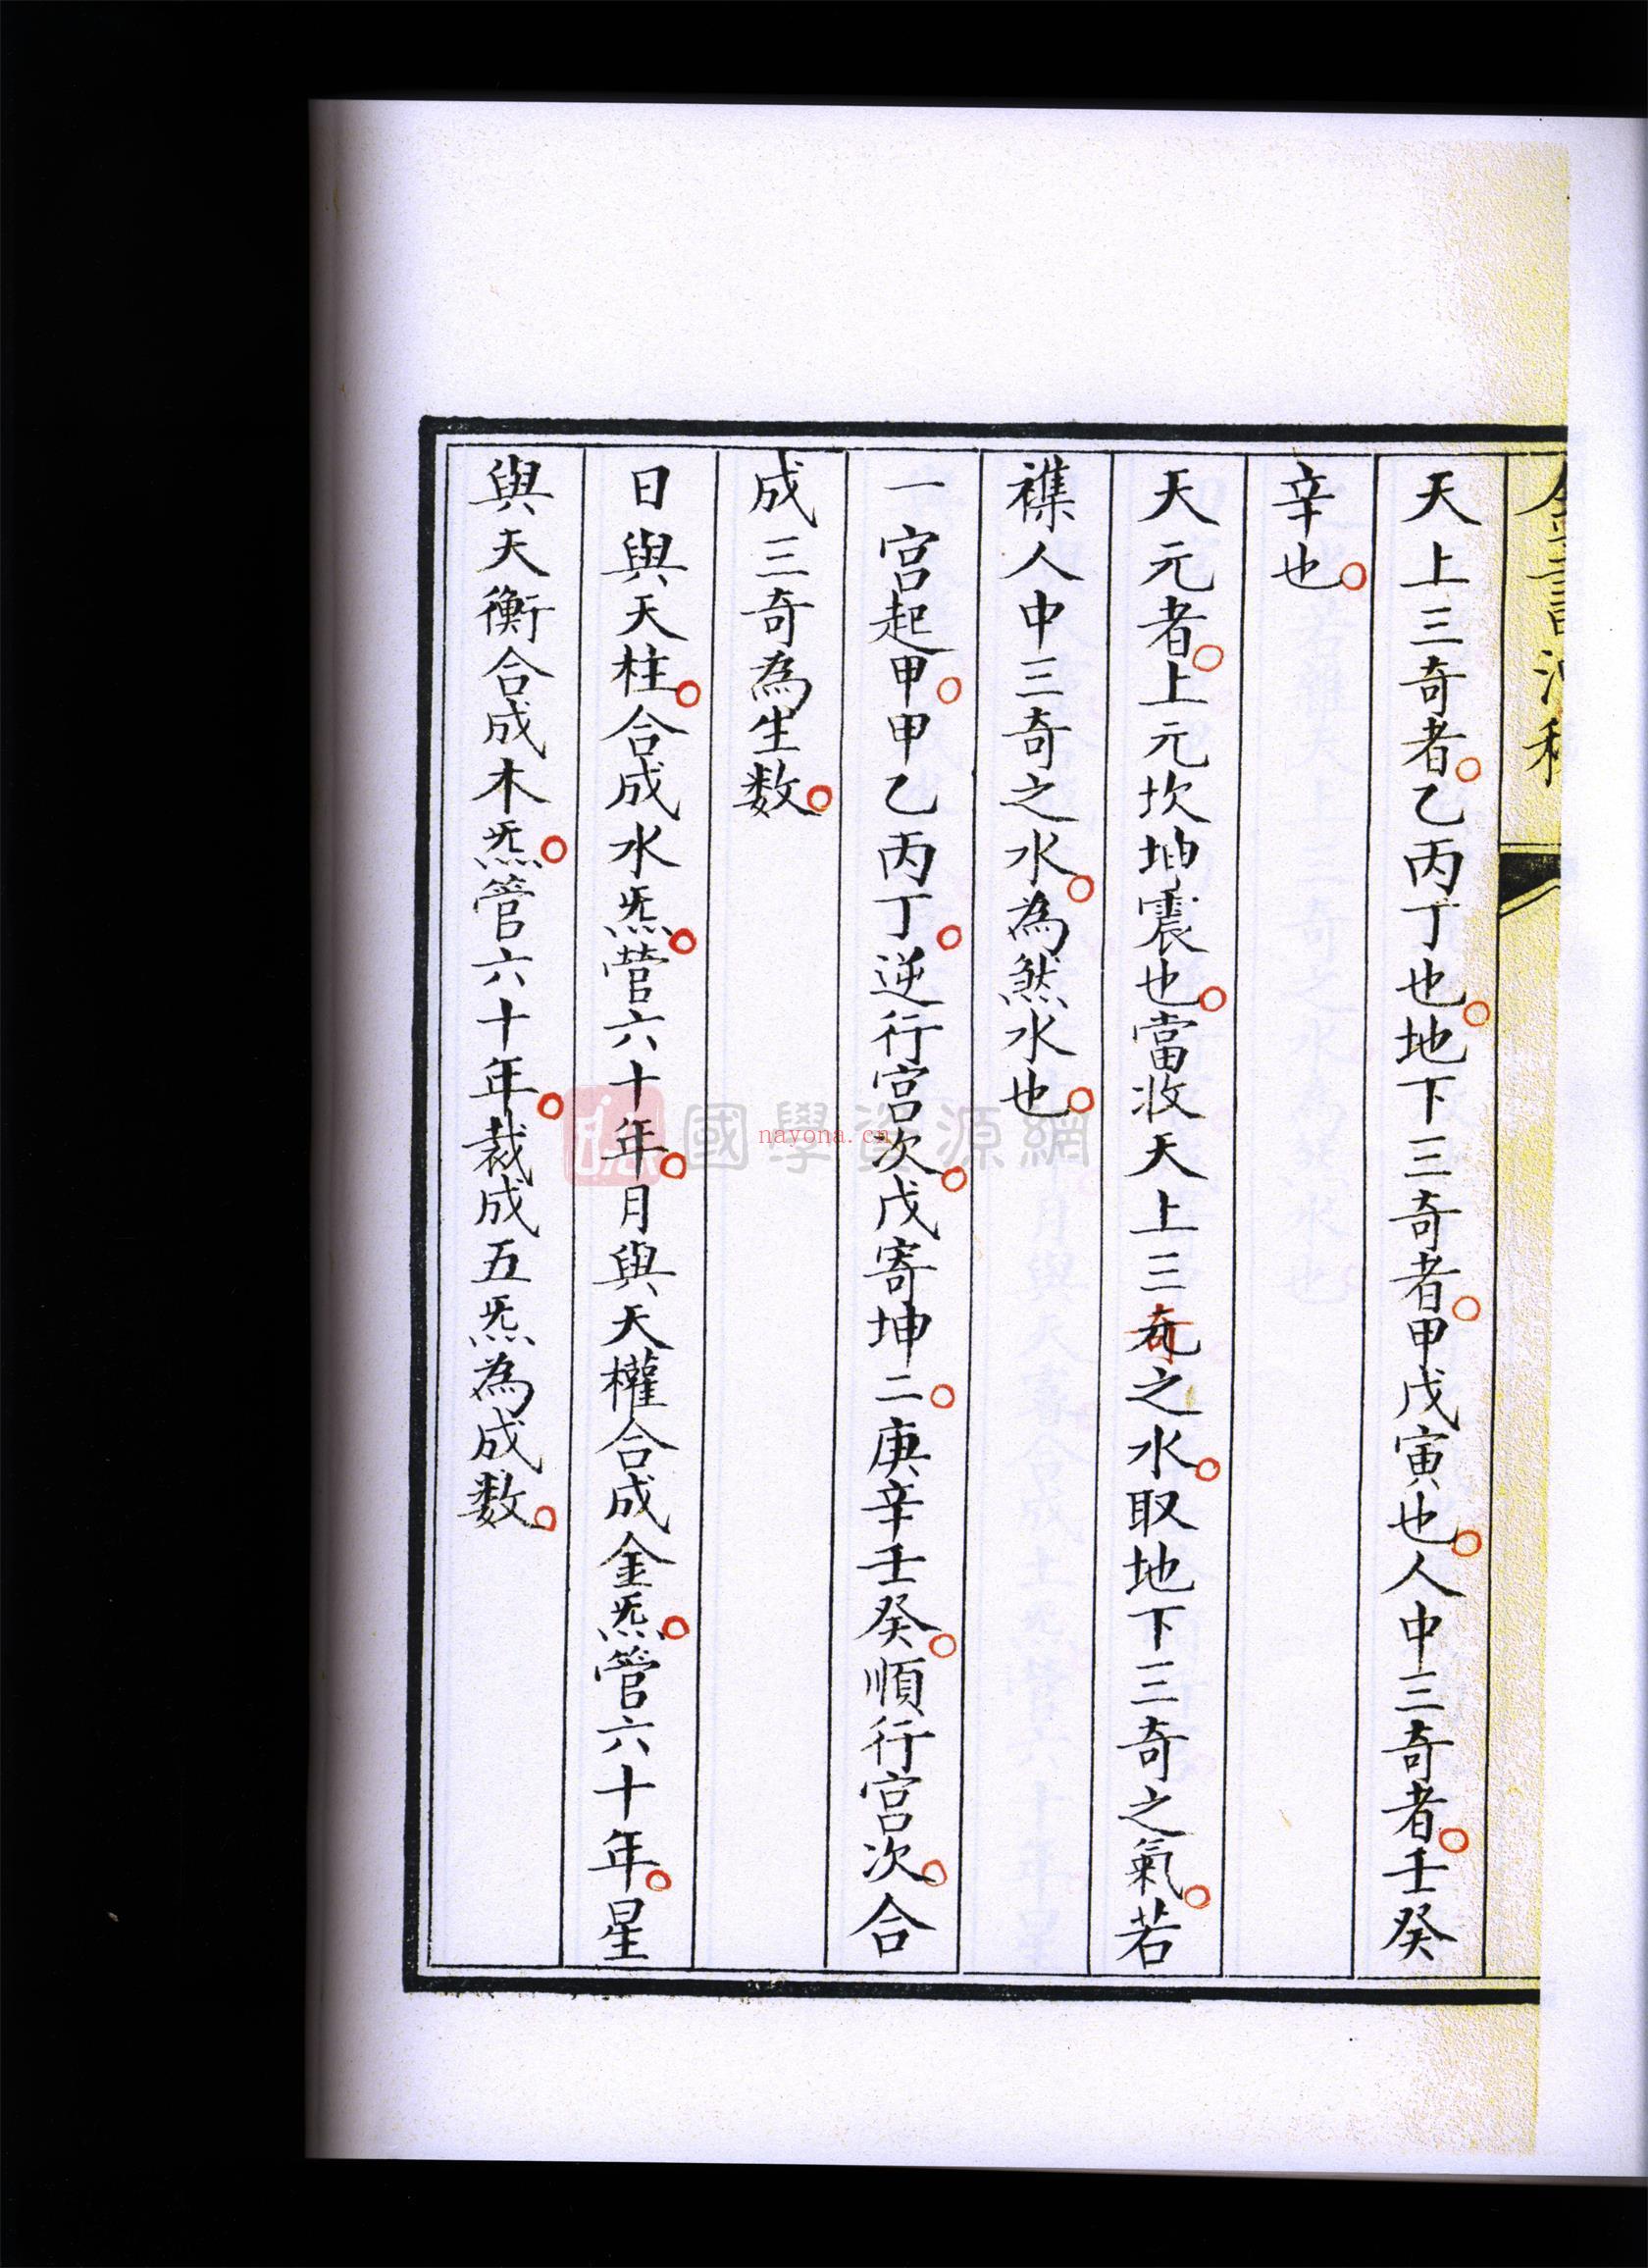 天上三奇者。乙丙丁也。地下三奇者。甲戊寅也。人中三奇者。壬癸
辛也。
天元者。上元坎坤震也。當收天上三奇之水。取地下三奇之氣。若
襍人中三奇之水。為煞水也。
一宮起甲。甲乙丙丁。逆行宮次。戊寄坤二。庚辛壬癸。順行宮次。合
成三奇為生数。
日與天柱。合成水炁。管六十年。月與天權合成金炁。管六十年。星
與天衡合成木炁。管六十年。裁成五炁為成数。
國學資源網
nayona.cn